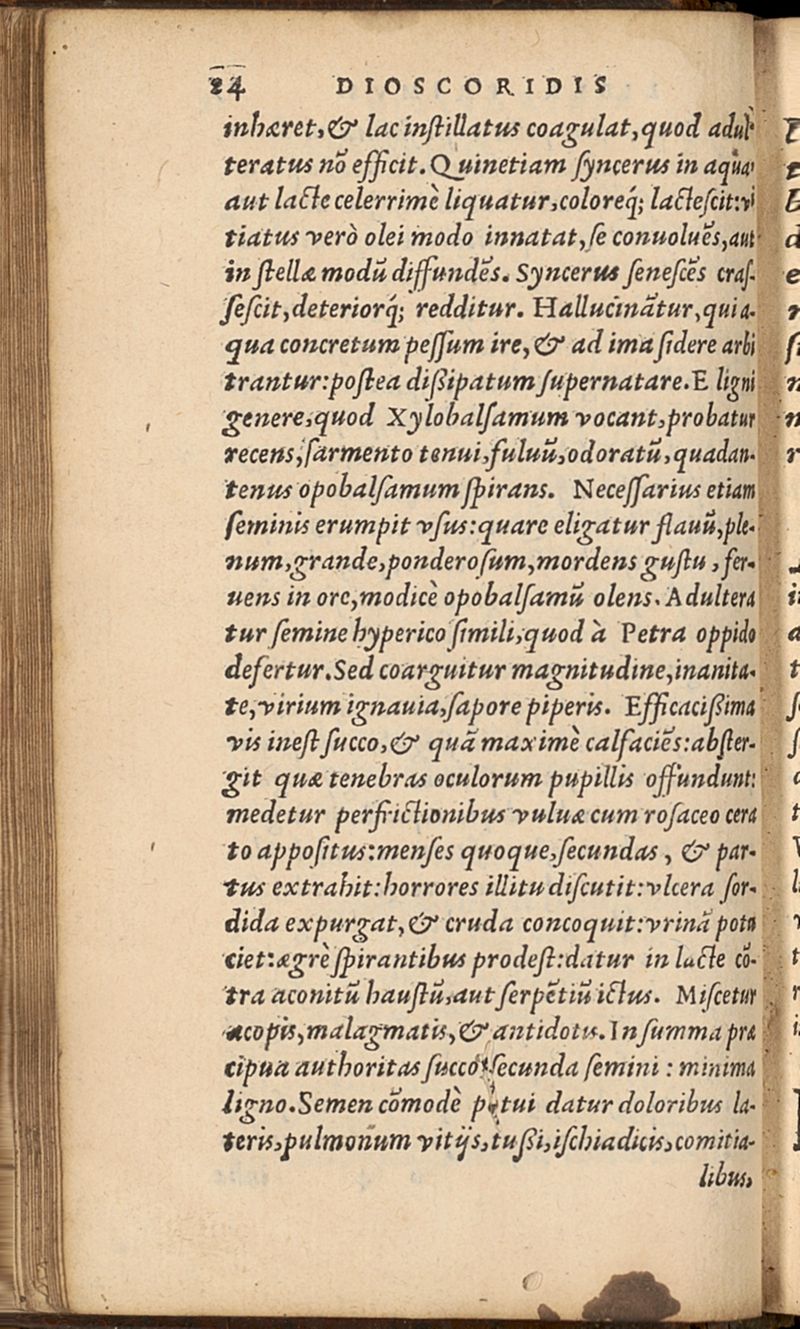 24 DIOSCORIDIS
inhæret, & lac inſtillatus coagulat, quod adul-
teratus nō efficit. Quinetiam ſyncerus in aqua,
aut lacte celerrimè liquatur, coloreq́; lacteſcit: vi
tiatus verò olei modo innatat, ſe conuoluēs, aut
in ſtellæ modū diffundēs. Syncerus ſeneſcēs craſ-
ſeſcit, deteriorq́; redditur. Hallucinātur, qui a-
qua concretum peſſum ire, & ad ima ſidere arbi
trantur: poſtea dißipatum ſupernatare. E ligni
genere, quod Xylobalſamum vocant, probatur
recens, ſarmento tenui, fuluū, odoratū, quadan-
tenus opobalſamum ſpirans. Neceſſarius etiam
ſeminis erumpit vſus: quare eligatur flauū, ple-
num, grande, ponderoſum, mordens guſtu, fer-
uens in ore, modicè opobalſamū olens. Adultera
tur ſemine hyperico ſimili, quod à Petra oppido
defertur. Sed coarguitur magnitudine, inanita-
te, virium ignauia, ſapore piperis. Efficacißima
vis ineſt ſucco, & quā maximè calfaciēs: abſter-
git quæ tenebras oculorum pupillis offundunt:
medetur perfrictionibus vuluæ cum roſaceo cera
to appoſitus: menſes quoque, ſecundas, & par-
tus extrahit: horrores illitu diſcutit: vlcera ſor-
dida expurgat, & cruda concoquit: vrinā potu
ciet: ægrè ſpirantibus prodeſt: datur in lacte cō-
tra aconitū hauſtū, aut ſerpētiū ictus. Miſcetur
acopis, malagmatis, & antidotis. In ſumma præ
cipua authoritas ſucco, ſecunda ſemini: minima
ligno. Semen cōmodè potui datur doloribus la-
teris, pulmonum vitijs, tußi, iſchiadicis, comitia-
libus,